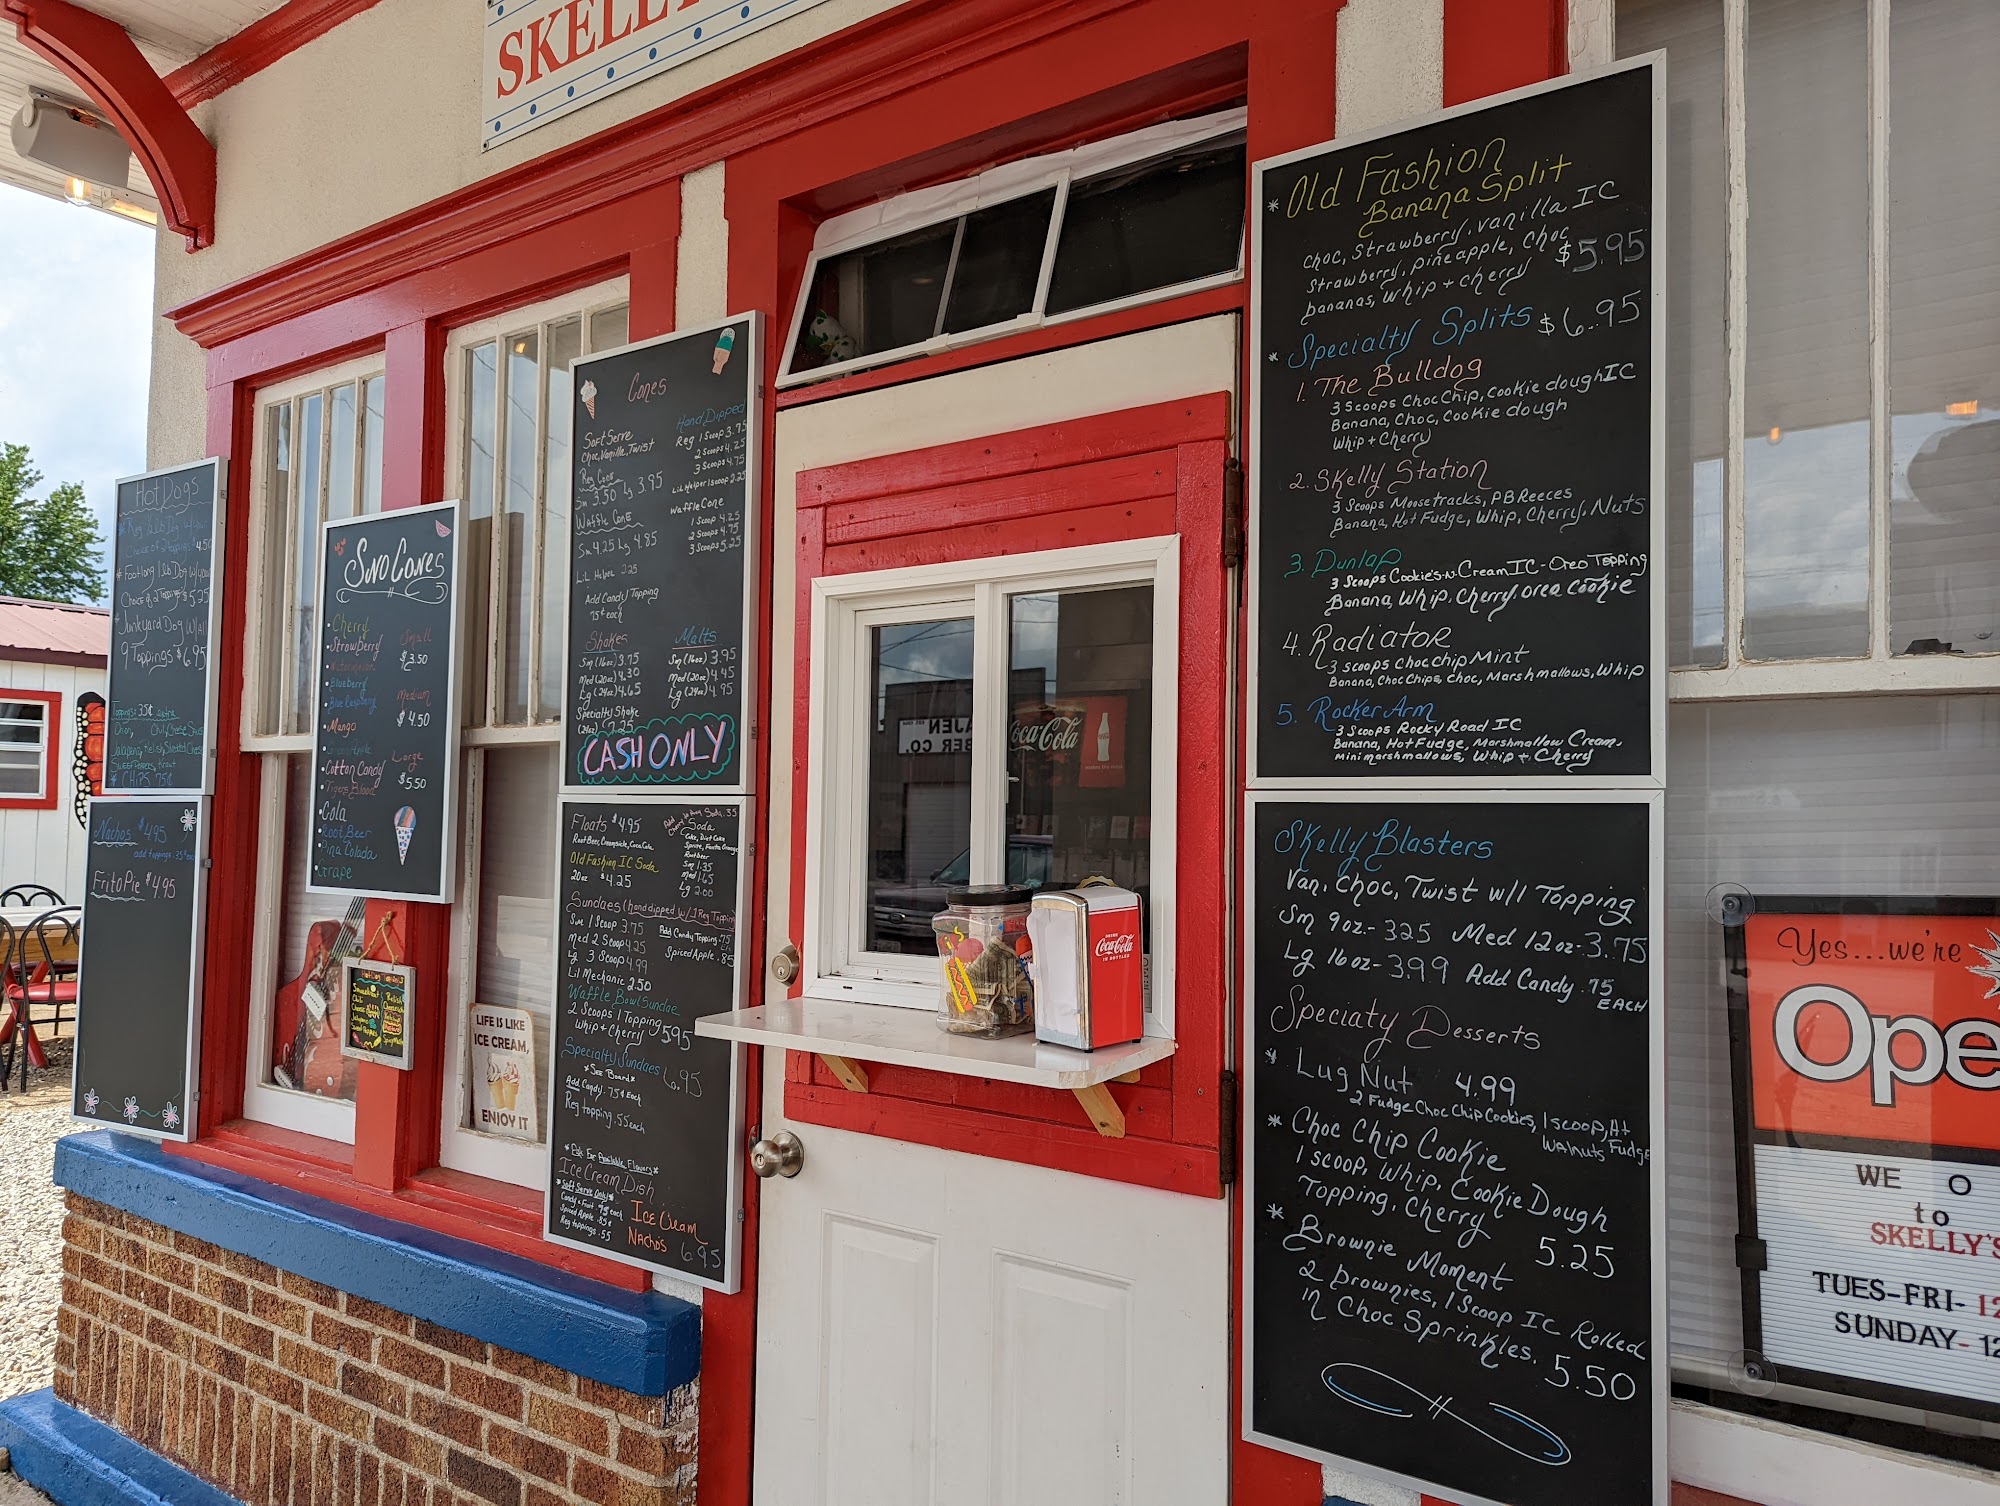 SKELLY
Hot Dogs
* Reg 1/4 lb Dog w/your
Choice of 2 toppings $4.50
* Footlong 1 lb Dog w/your
Choice of 2 Toppings $5.25
* Junkyard Dog w/all
9 Toppings $6.95
Toppings 35¢ extra
Jalapeno, Relish, Shredded Cheese
Sweet Peppers, Kraut
* Chips 75¢
Nachos $4.95
add toppings .35¢ea
Frito Pie $4.95
Sno Cones
• Cherry
• Strawberry
• Watermelon
• Blueberry
• Blue Raspberry
• Mango
• Green Apple
• Cotton Candy
• Tigers Blood
• Cola
• Root Beer
• Pina Colada
• Grape
Small
$3.50
Medium
$4.50
Large
$5.50
Cones
Soft Serve
Choc, Vanilla, Twist
Reg Cone
Sm 3.50 Lg 3.95
Waffle Cone
Sm 4.25 Lg 4.85
Lil Helper 2.25
Add Candy Topping
75¢ each
Hand Dipped
Reg 1 Scoop 3.75
2 Scoops 4.25
3 Scoops 4.75
Lil Helper 1 scoop 2.25
Waffle Cone
1 Scoop 4.25
2 Scoops 4.75
3 Scoops 5.25
Shakes
Sm (16oz) 3.75
Med (20oz) 4.30
Lg (24oz) 4.65
Specialty Shake
(24oz)
Malts
Sm (16oz) 3.95
Med (20oz) 4.45
Lg (24oz) 4.95
CASH ONLY
Floats $4.95
Root Beer, Creamsicle, Coca Cola
Old Fashion IC Soda
20oz $4.25
Soda
Coke, Diet Coke
Sprite, Fanta Orange
Root beer
Sm 1.35
Med 1.65
Lg 2.00
Sundaes (hand dipped w/1 Reg Topping
Sm 1 Scoop 3.75
Med 2 Scoop 4.25
Lg 3 Scoop 4.99
Lil Mechanic 2.50
Add Candy Topping .75
Spiced Apple .85
Waffle Bowl Sundae
2 Scoops 1 Topping
Whip + Cherry 5.95
Specialty Sundaes 6.95
* See Board *
Add Candy .75¢ Each
Reg topping .55 each
* Ask For Available Flavors *
Ice Cream Dish
* Soft Serve Only *
Candy + Fruit .95 each
Spiced Apple .85¢
Reg toppings .55
Ice Cream
Nacho's 6.95
LIFE IS LIKE
ICE CREAM,
ENJOY IT
Coca-Cola
DRINK
Coca-Cola
IN BOTTLES
* Old Fashion
Banana Split
Choc, Strawberry, Vanilla IC
Strawberry, Pineapple, Choc
bananas, Whip + Cherry $5.95
* Specialty Splits $6.95
1. The Bulldog
3 Scoops Choc Chip, Cookie dough IC
Banana, Choc, Cookie dough
Whip + Cherry
2. Skelly Station
3 Scoops Moosetracks, PB Reeces
Banana, Hot Fudge, Whip, Cherry, Nuts
3. Dunlap
3 Scoops Cookie's-N-Cream IC - Oreo Topping
Banana, Whip, Cherry, Oreo Cookie
4. Radiator
3 Scoops Choc chip Mint
Banana, Choc Chips, Choc, Marshmallows, Whip
5. Rocker Arm
3 Scoops Rocky Road IC
Banana, Hot Fudge, Marshmallow Cream,
Mini marshmallows, Whip + Cherry
Skelly Blasters
Van, Choc, Twist w/1 Topping
Sm 9oz- 325 Med 12oz-3.75
Lg 16oz-3.99 Add Candy .75
EACH
Speciaty Desserts
* Lug Nut 4.99
2 Fudge Choc Chip Cookies, 1 scoop, Ht
Walnuts Fudge
* Choc Chip Cookie
1 scoop, Whip, Cookie Dough
Topping, Cherry 5.25
* Brownie Moment
2 brownies, 1 Scoop IC Rolled
in Choc Sprinkles. 5.50
Yes...we're
Ope
WE O
to
SKELLY'S
TUES-FRI- 12
SUNDAY- 12